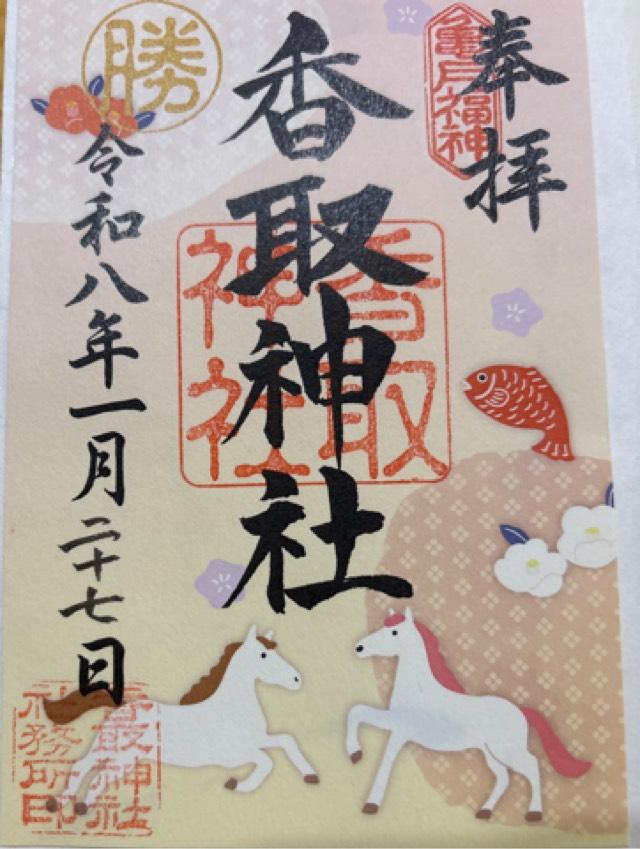 奉拝
亀戸福神
香取神社
香取神社
勝
令和八年一月二十七日
香取神社
社務所印